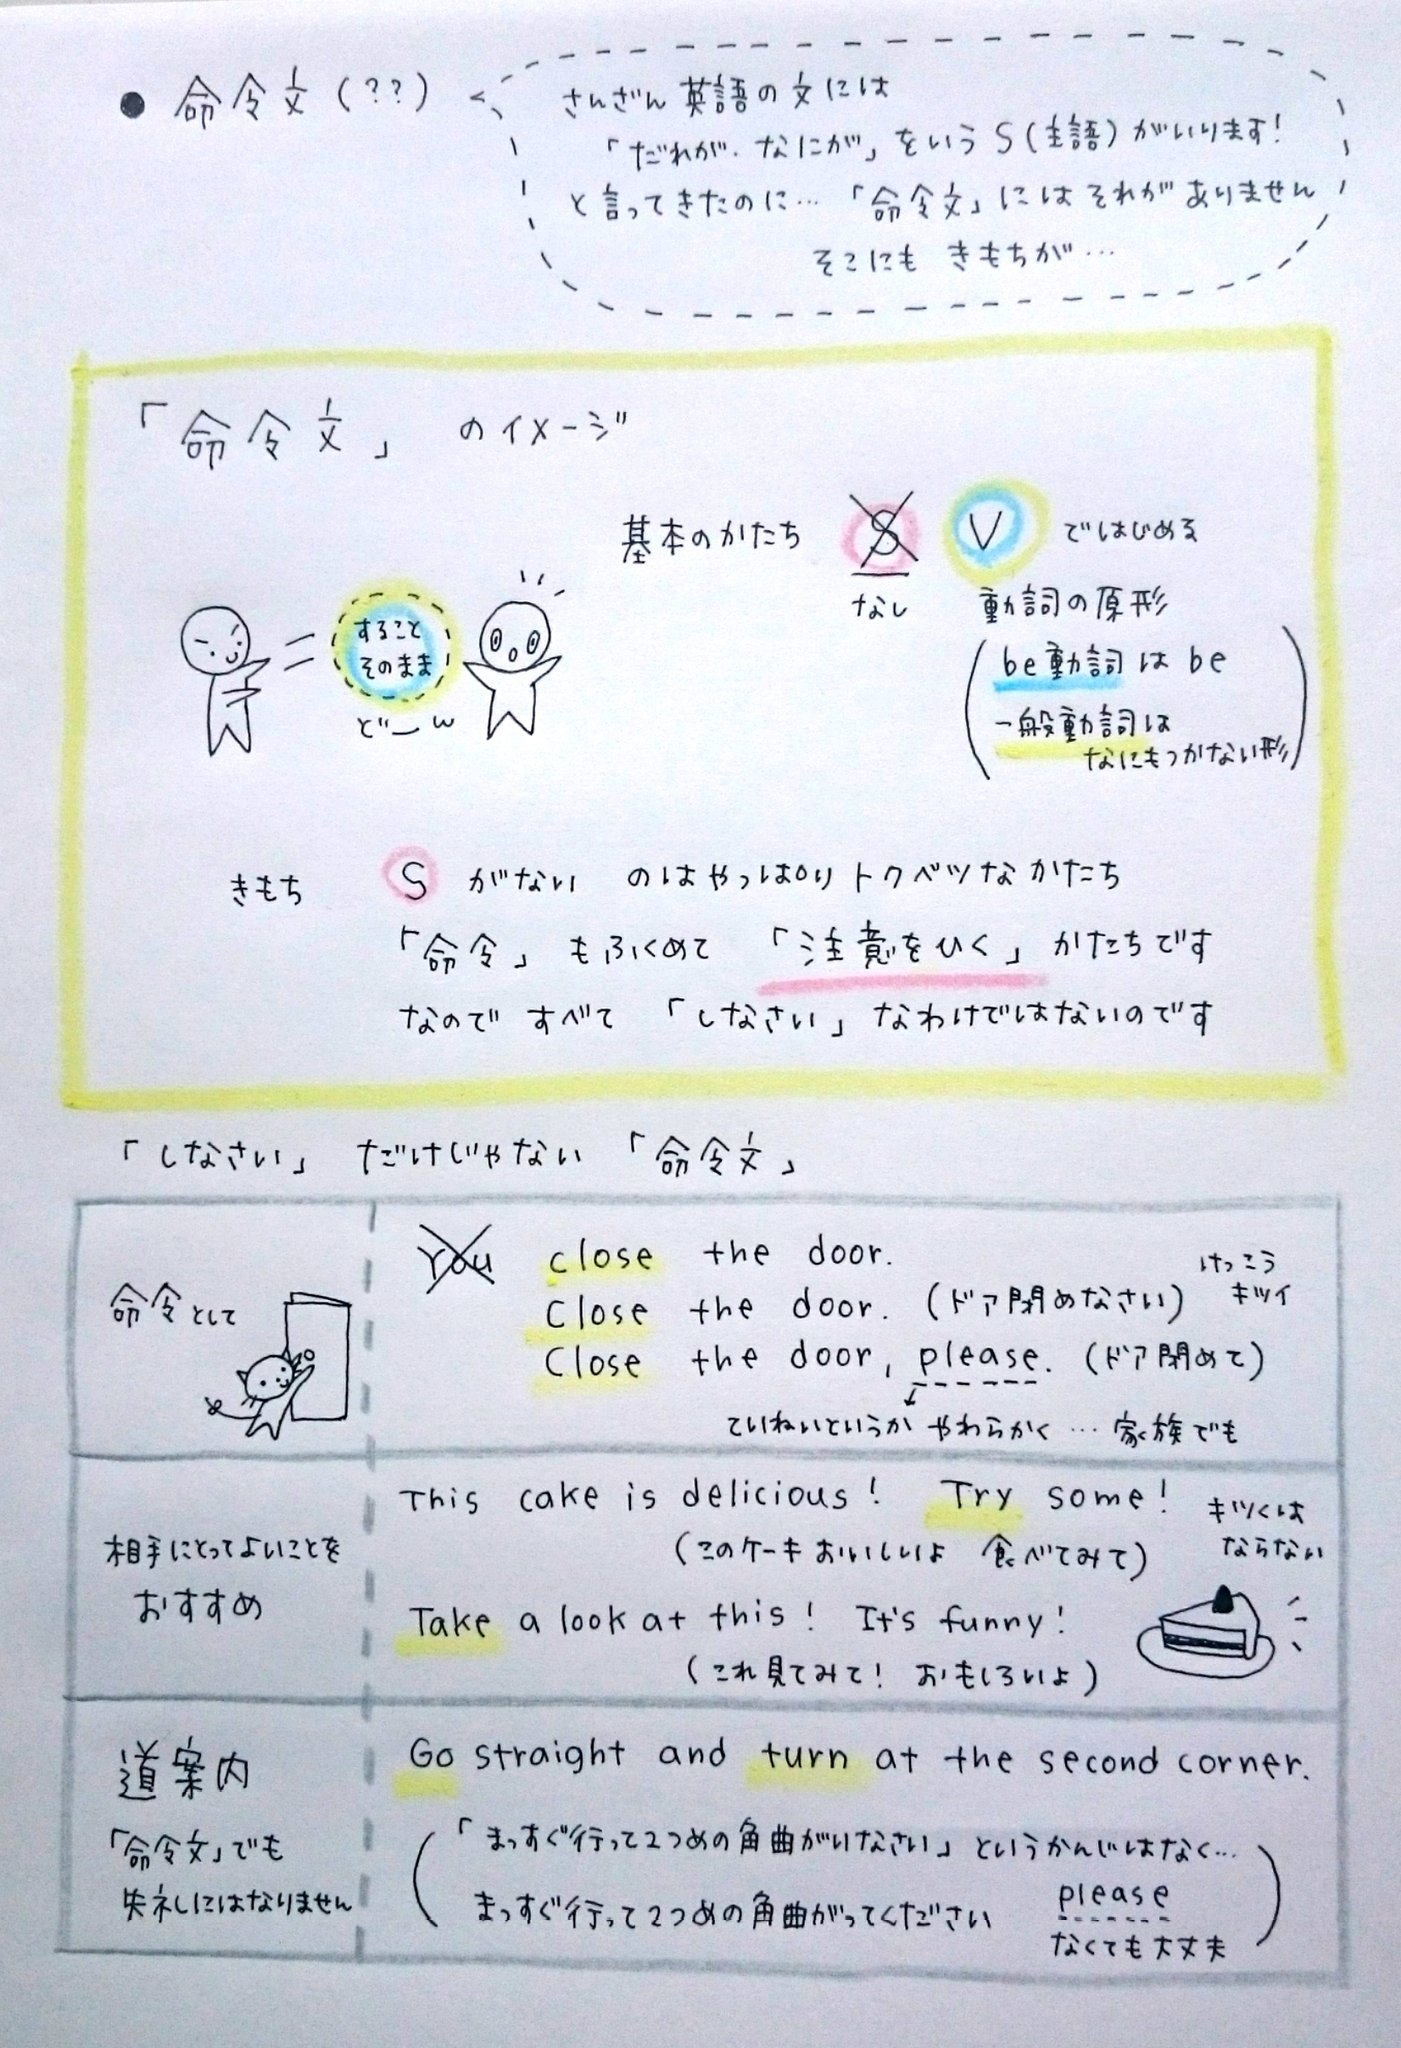 ● 命令文(??)
さんざん英語の文には
「だれが・なにが」をいうS(主語)がいります!
と言ってきたのに…「命令文」にはそれがありません
そこにも きもちが…
「命令文」のイメージ
基本のかたち S V ではじめる
なし 動詞の原形
be動詞は be
一般動詞は
なにもつかない形
すること
そのまま
どーん
きもち S がない のはやっぱりトクベツなかたち
「命令」もふくめて 「注意をひく」かたちです
なので すべて 「しなさい」なわけではないのです
「しなさい」だけじゃない「命令文」
命令として
You close the door.
Close the door. (ドア閉めなさい)
けっこう
キツイ
Close the door, please. (ドア閉めて)
ていねいというか やわらかく … 家族でも
相手にとってよいことを
おすすめ
This cake is delicious! Try some!
(このケーキおいしいよ 食べてみて)
キツくは
ならない
Take a look at this! It's funny!
(これ見てみて! おもしろいよ)
道案内
「命令文」でも
失礼にはなりません
Go straight and turn at the second corner.
「まっすぐ行って2つめの角曲がいなさい」というかんじはなく…
まっすぐ行って2つめの角曲がってください
please
なくても大丈夫